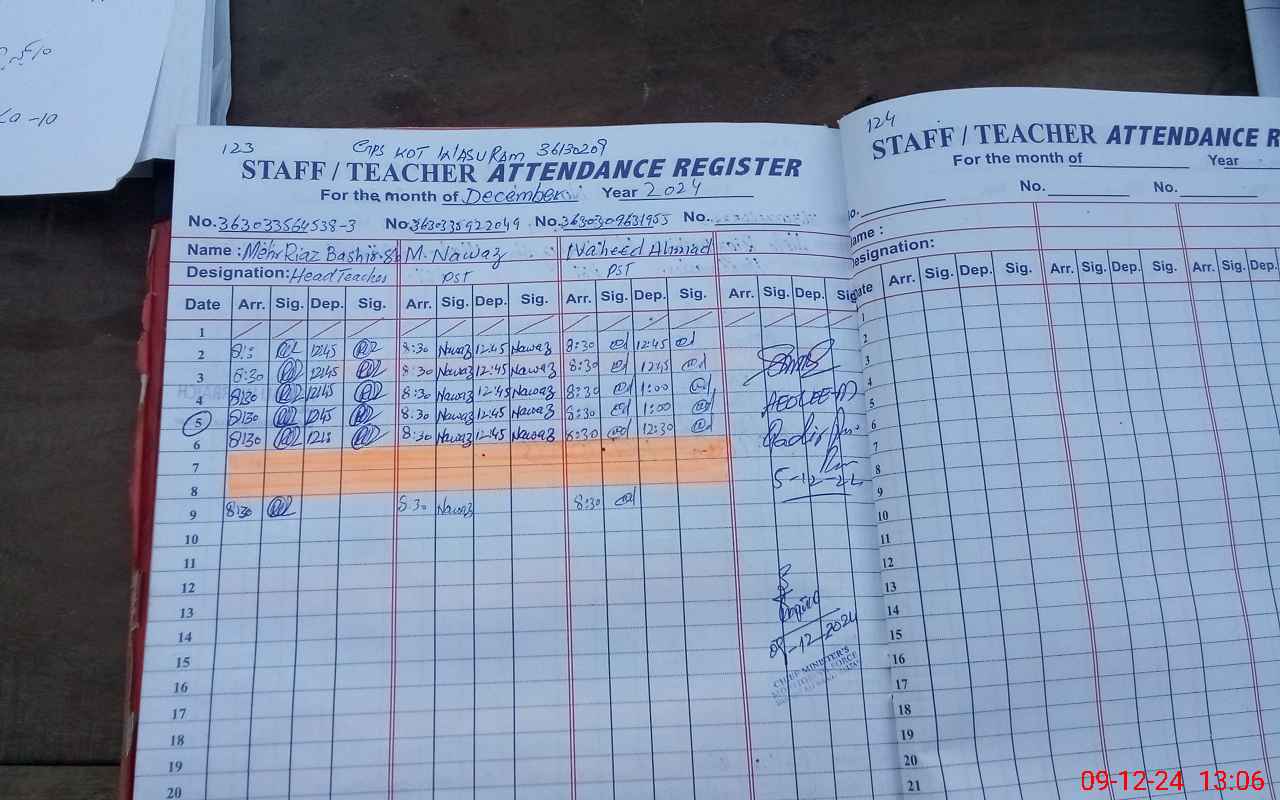 123
GPS KOT WASURAM 36130209
STAFF / TEACHER ATTENDANCE REGISTER
For the month of December Year 2024
No. 363033564538-3 No. 3630335922049 No. 3630309631955 No.
Name : Mehr Riaz Bashir M. Nawaz Naheed Ahmad
Designation: Head Teacher PST PST
Date Arr. Sig. Dep. Sig. Arr. Sig. Dep. Sig. Arr. Sig. Dep. Sig. Arr. Sig. Dep. Sig
1
2 12:45 8:30 Nawaz 12:45 Nawaz 8:30 12:45
3 8:30 12:45 8:30 Nawaz 12:45 Nawaz 8:30 12:45
4 8:30 12:45 8:30 Nawaz 12:45 Nawaz 8:30 1:00
5 8:30 12:45 8:30 Nawaz 12:45 Nawaz 8:30 1:00
6 8:30 8:30 Nawaz 12:45 Nawaz 8:30 12:30
7
8
9 8:30 8:30 Nawaz 8:30
10
11
12
13
14
15
16
17
18
19
20
5-12-24
09-12-2024
CHIEF MINISTER'S
124
STAFF / TEACHER ATTENDANCE R
For the month of Year
No. No.
ame :
esignation:
ate Arr. Sig. Dep. Sig. Arr. Sig. Dep. Sig. Arr. Sig. Dep.
1
2
3
4
5
6
7
8
9
10
11
12
13
14
15
16
17
18
19
20
21
09-12-24 13:06